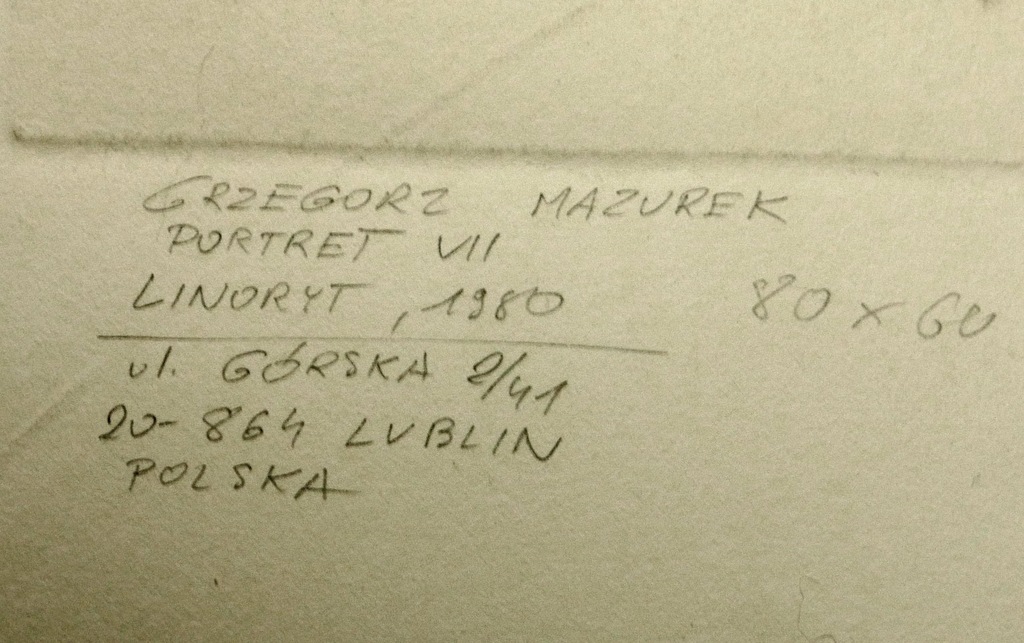 GRZEGORZ MAZUREK
PORTRET VII
LINORYT, 1980
80 x 60
ul. GÓRSKA 2/41
20-864 LUBLIN
POLSKA